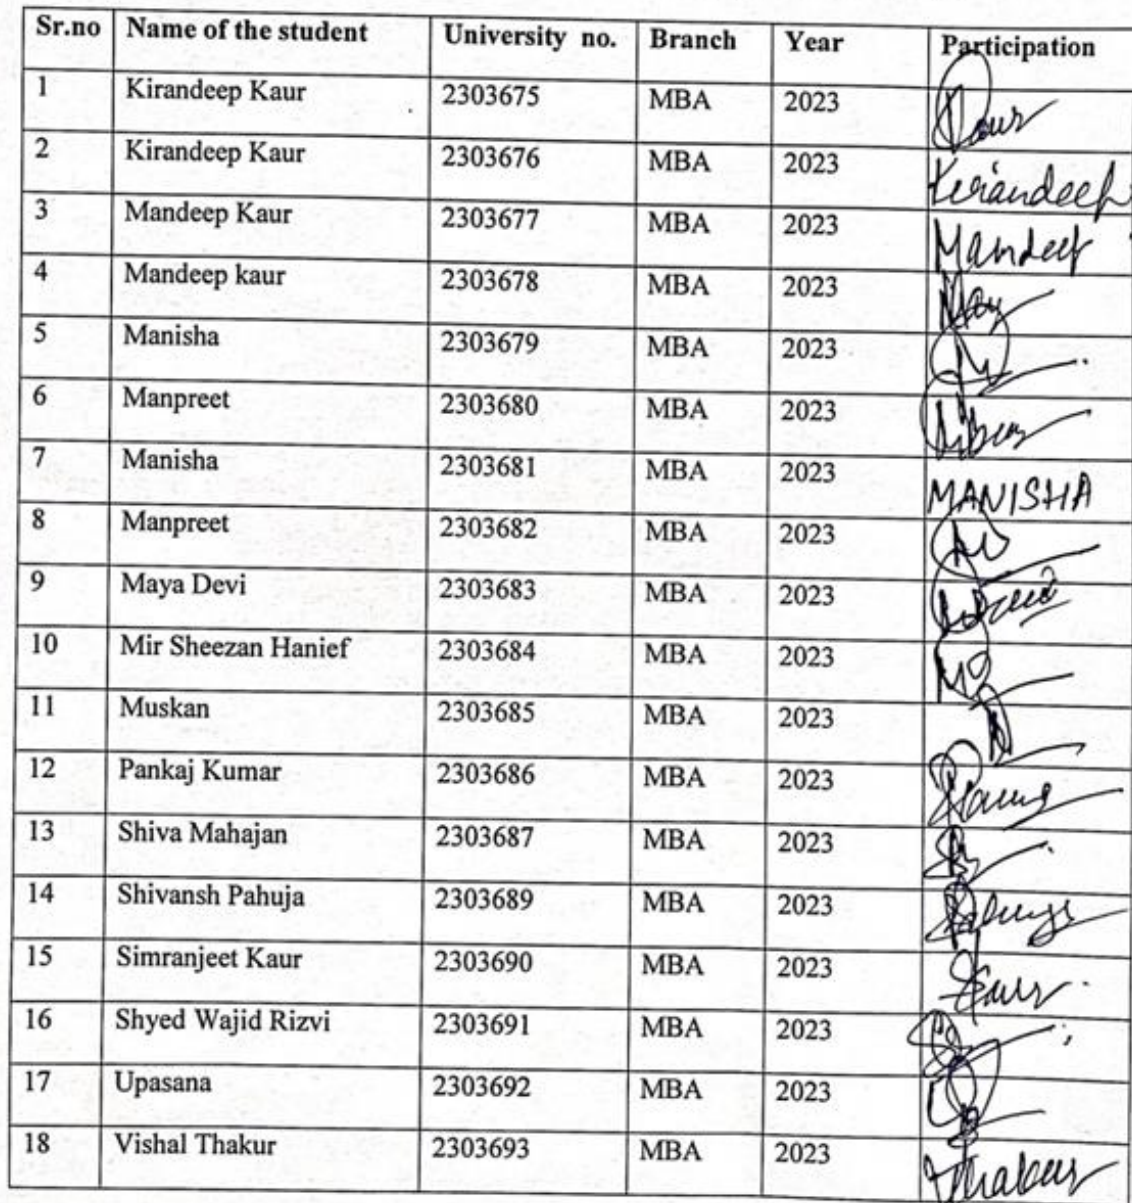 Sr.no Name of the student University no. Branch Year Participation
1 Kirandeep Kaur 2303675 MBA 2023 Kaur
2 Kirandeep Kaur 2303676 MBA 2023 Kirandeep
3 Mandeep Kaur 2303677 MBA 2023 Mandeep
4 Mandeep kaur 2303678 MBA 2023
5 Manisha 2303679 MBA 2023
6 Manpreet 2303680 MBA 2023
7 Manisha 2303681 MBA 2023 MANISHA
8 Manpreet 2303682 MBA 2023
9 Maya Devi 2303683 MBA 2023
10 Mir Sheezan Hanief 2303684 MBA 2023
11 Muskan 2303685 MBA 2023
12 Pankaj Kumar 2303686 MBA 2023
13 Shiva Mahajan 2303687 MBA 2023
14 Shivansh Pahuja 2303689 MBA 2023
15 Simranjeet Kaur 2303690 MBA 2023 Kaur
16 Shyed Wajid Rizvi 2303691 MBA 2023
17 Upasana 2303692 MBA 2023
18 Vishal Thakur 2303693 MBA 2023 Thakur